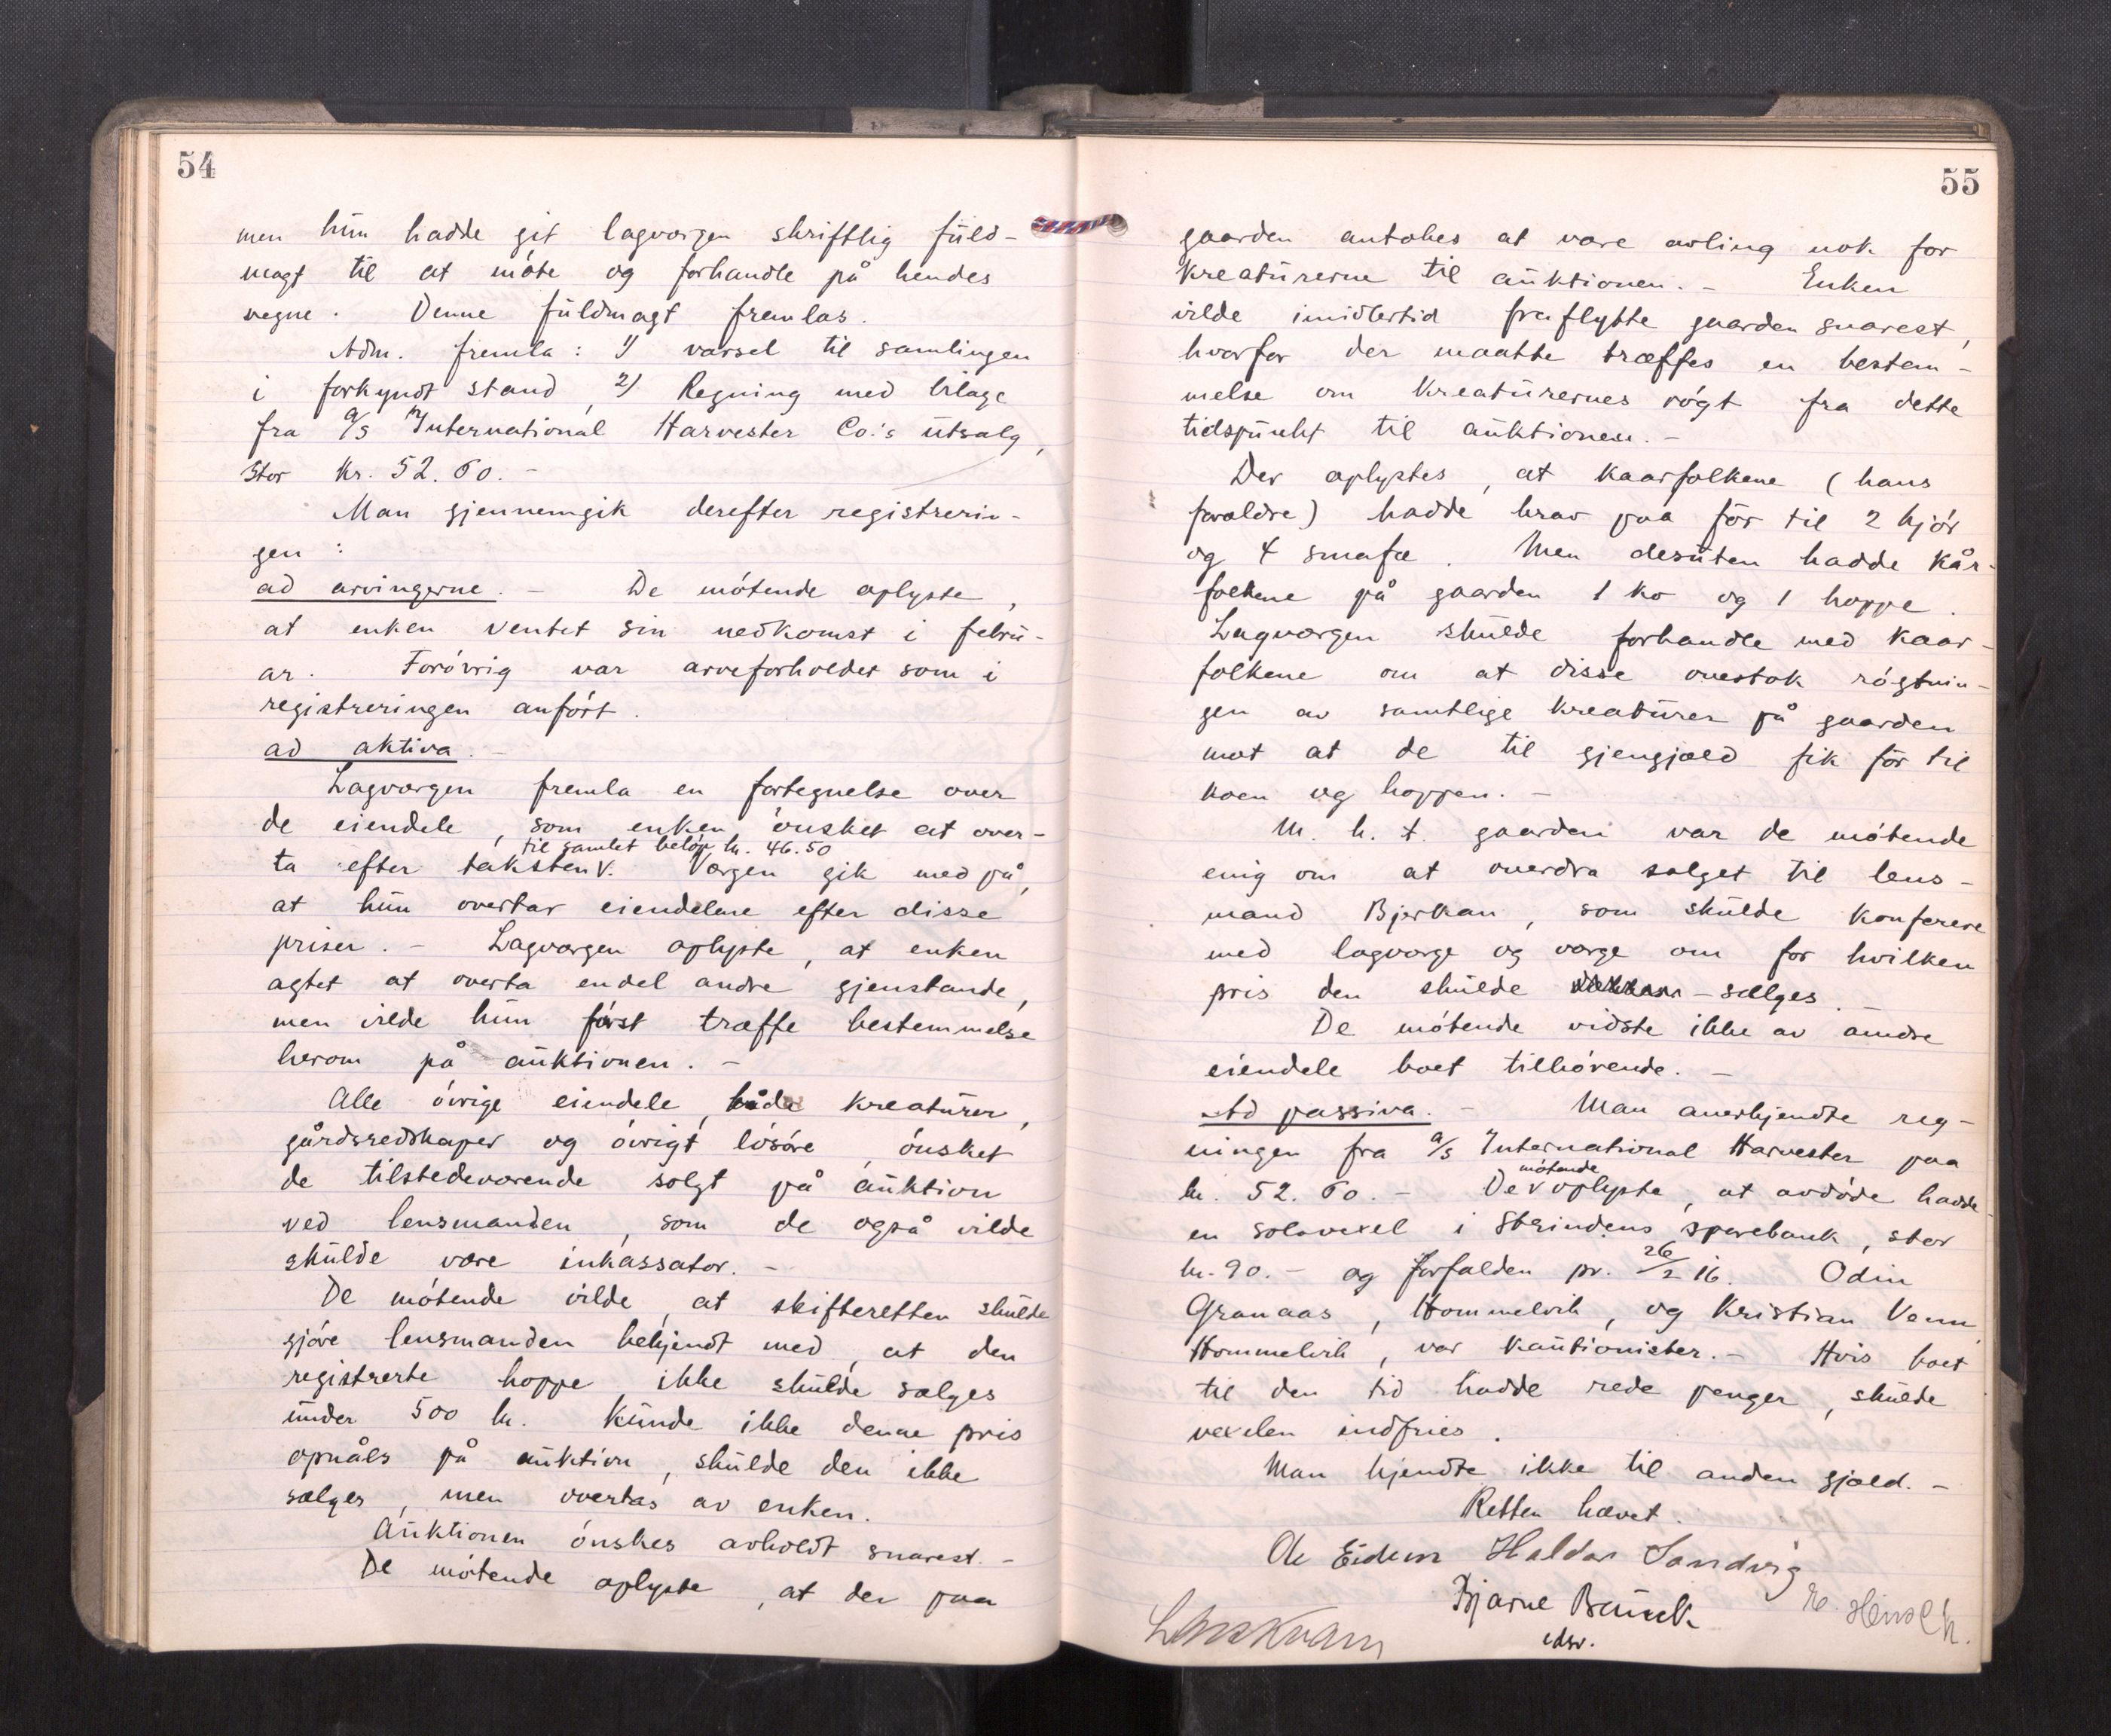 54
men hun hadde git lagværgen skriftlig fuld-
magt til at møte og forhandle på hendes
vegne. Denne fuldmagt fremlæs.
Adm. fremla: 1) varsel til samlingen
i forkyndt stand, 2) Regning med bilage
fra A/S International Harvester Co.'s utsalg,
stor kr. 52.60.-
Man gjennemgik derefter registrerin-
gen:
ad arvingerne. - De møtende oplyste,
at enken ventet sin nedkomst i febru-
ar. Forøvrig var arveforholdet som i
registreringen anført.
ad aktiva. -
Lagværgen fremla en fortegnelse over
de eiendele, som enken ønsket at over-
til samlet beløp kr. 46.50
ta efter taksten V. Værgen gik med på,
at hun overtar eiendelene efter disse
priser. - Lagværgen oplyste, at enken
agtet at overta endel andre gjenstande,
men vilde hun først træffe bestemmelse
herom på auktionen. -
Alle øvrige eiendele, både kreaturer,
gårdsredskaper og øvrigt løsøre, ønsket
de tilstedeværende solgt på auktion
ved lensmanden, som de også vilde
skulde være inkassator. -
De møtende vilde, at skifteretten skulde
gjøre lensmanden bekjendt med, at den
registrerte hoppe ikke skulde sælges
under 500 kr. Kunde ikke denne pris
opnåes på auktion, skulde den ikke
sælges, men overtas av enken.
Auktionen ønskes avholdt snarest. -
De møtende oplyste, at der paa
55
gaarden antokes at være avling nok for
kreaturerne til auktionen. - Enken
vilde imidlertid fraflytte gaarden snarest,
hvorfor der maatte træffes en bestem-
melse om kreaturernes røgt fra dette
tidspunkt til auktionen. -
Der oplystes, at kaarfolkene (hans
forældre) hadde krav paa fôr til 2 kjør
og 4 smafæ. Men desuten hadde kår-
folkene på gaarden 1 ko og 1 hoppe.
Lagværgen skulde forhandle med kaar-
folkene om at disse overtok røgtnin-
gen av samtlige kreaturer på gaarden
mot at de til gjengjæld fik fôr til
koen og hoppen. -
M. h. t. gaarden var de møtende
enig om at overdra salget til lens-
mand Bjerkan, som skulde konferere
med lagværge og værge om for hvilken
pris den skulde - sælges. -
De møtende vidste ikke av andre
eiendele boet tilhørende. -
Ad passiva. - Man anerkjendte reg-
ningen fra A/S International Harvester paa
møtende
kr. 52.60. - De V oplyste, at avdøde hadde
en solavexel i Strindens sparebank, stor
kr. 90.- og forfalden pr. 26/2 16. Odin
Granaas, Hommelvik, og Kristian Venn,
Hommelvik, var kautionister. - Hvis boet
til den tid hadde rede penger, skulde
vexelen indfries.
Man kjendte ikke til anden gjæld. -
Retten hævet.
Ole Eidem Haldor Sandvig
Bjarne Brunk
Lars Kvam
edsv.